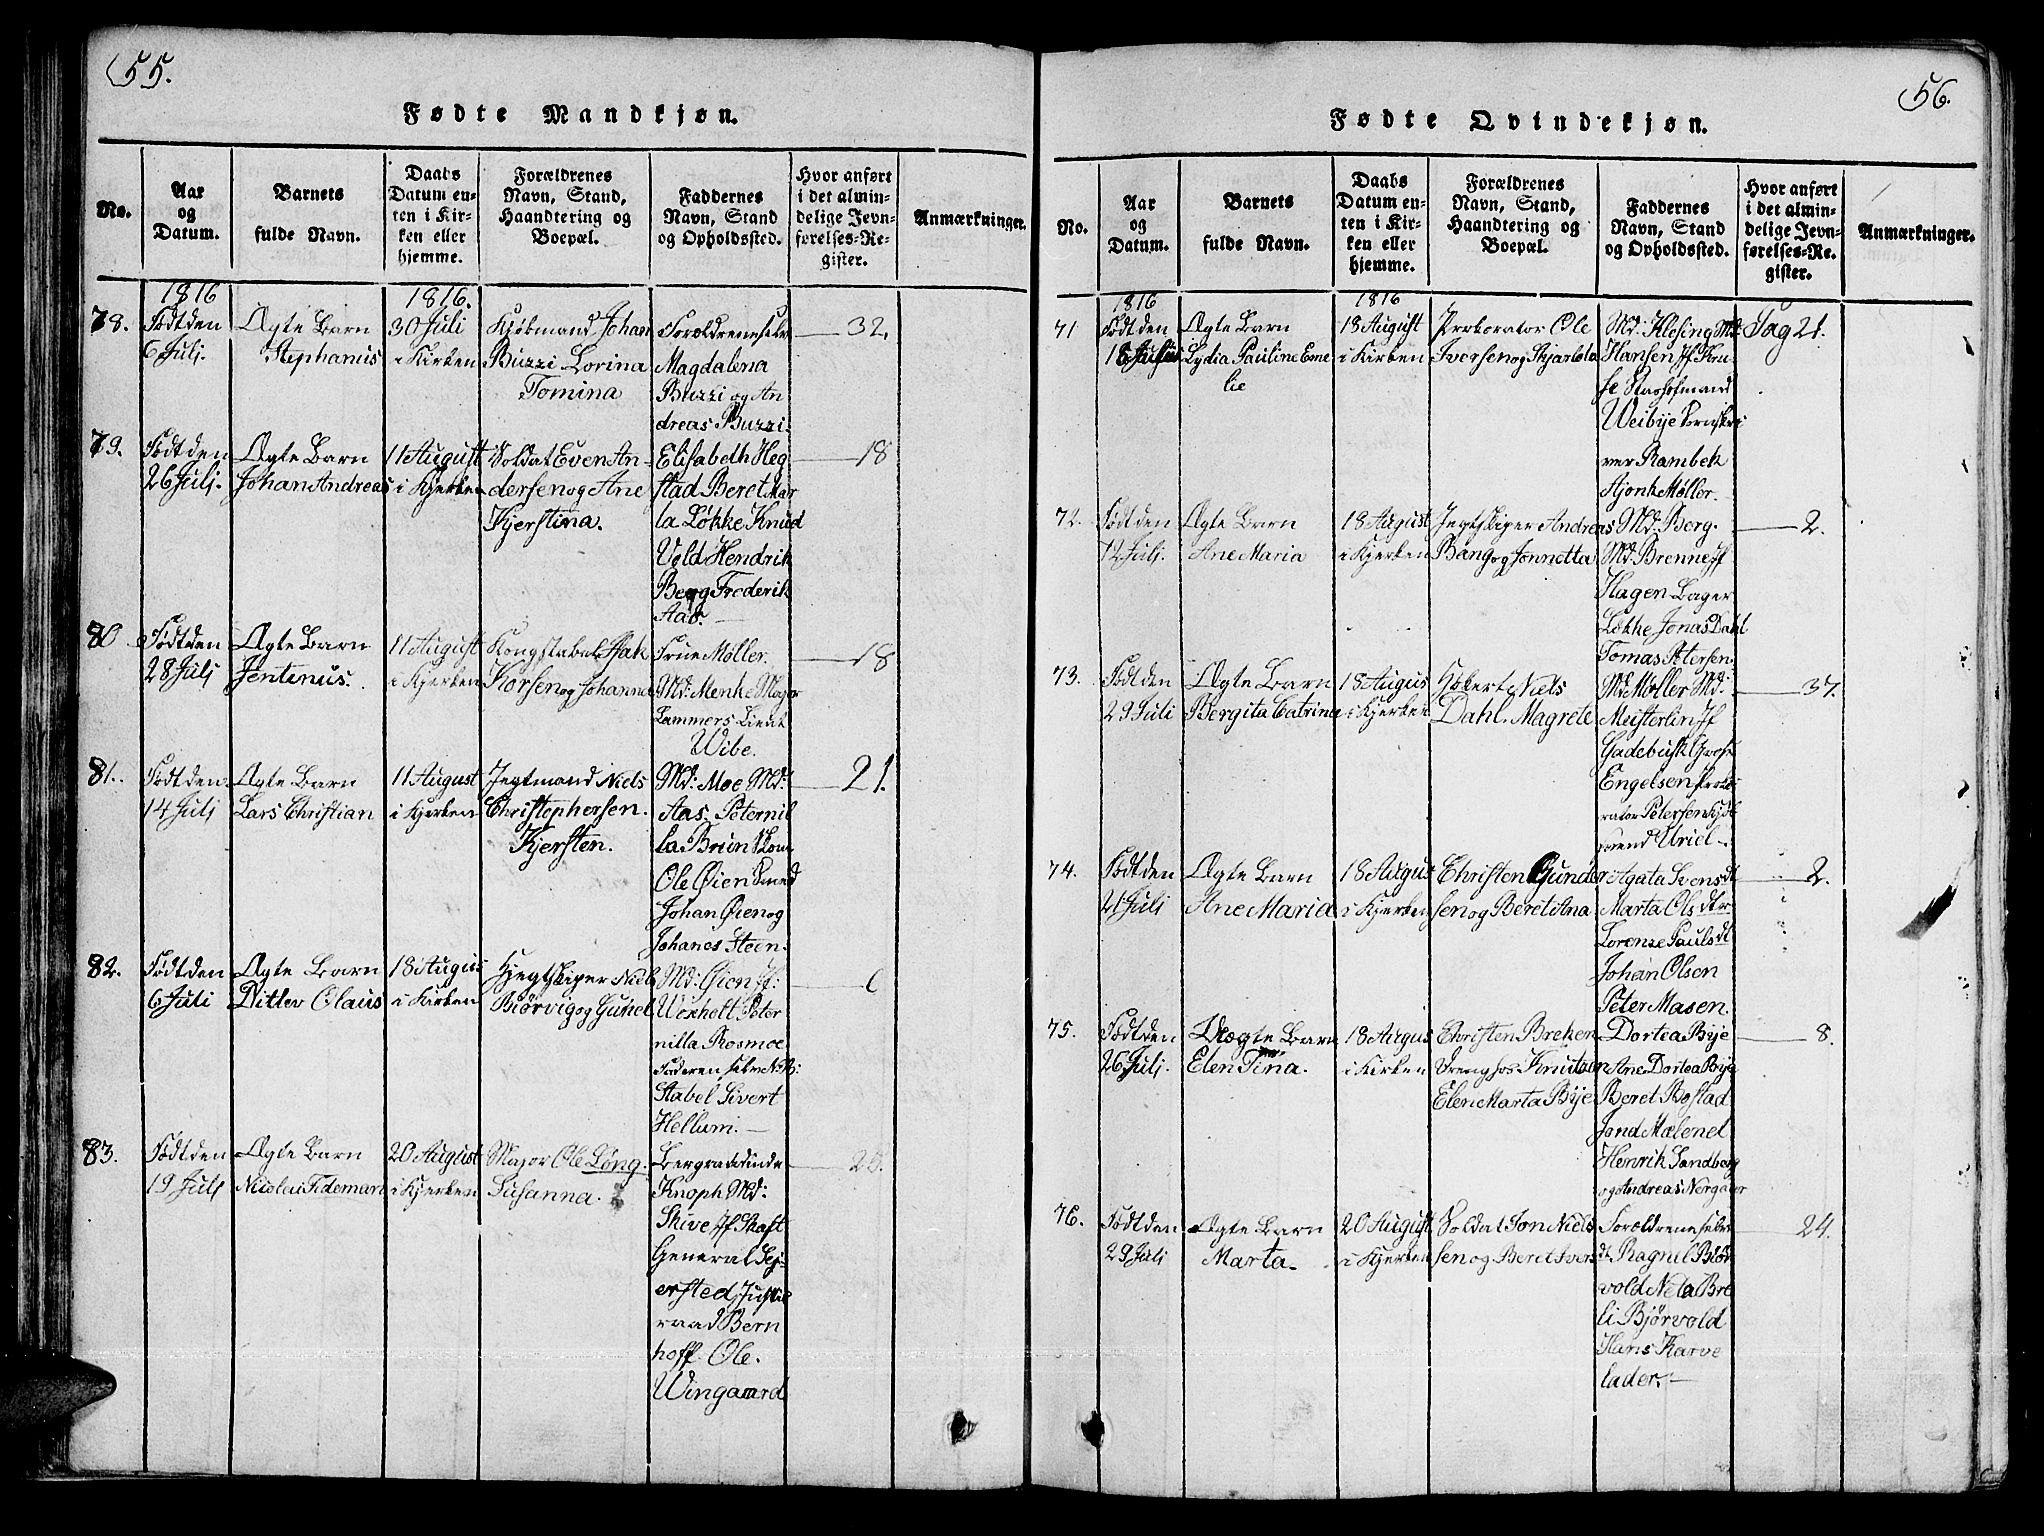 55.
Fødte Mandkjøn.
No.
Aar
og
Datum.
Barnets
fulde Navn.
Daabs
Datum en-
ten i Kir-
ken eller
hjemme.
Forældrenes
Navn, Stand,
Haandtering og
Boepæl.
Faddernes
Navn, Stand
og Opholdssted.
Hvor anført
i det almin-
delige Jevn-
førelses-Re-
gister.
Anmærkninger.
1816
1816.
78.
Født den
6 Juli.
Ægte Barn
Stephanus
30 Juli
i Kirken
Kjøbmand Johan
Buzzi Lorina
Tomina
Forældrene selv
Magdalena
Buzzi og An
dreas Buzzi.
32.
79.
Født den
26 Juli.
Ægte Barn
Johan Andreas
11 August
i Kjerken
Soldat Even An-
dersen og Ane
Kjerstina.
Elisabeth Heg
stad Beret Mar
ta Løkke Knud
Vold Hendrik
Berg Frederik
Aas.
18
80
Født den
28 Juli
Ægte Barn
Jentinus.
11 August
i Kjerken
Kongstabel Isak
Korsen og Johanne
Frue Møller.
Md: Menke Major
Lammers Lieut
Wibe.
18
81.
Født den
14 Juli
Ægte Barn
Lars Christian
11 August
i Kjerken
Jegtmand Niels
Christophersen.
Kjersten.
Md: Moe Md:
Aas. Peternil
la Brun
Ole Øien Smed
Johan Øien og
Johanes Steen.
21.
82.
Født den
6 Juli
Ægte Barn
Ditlev Olaus
18 Augus
i Kirken
Hjegtskiper Niels
Biørvig og Gunel
Md: Øien Jf:
Woxholt Peter
nilla Rosmoe
Faderen selv
Stabel Sivert
Hellum.
6
83.
Født den
19 Juli
Ægte Barn
Nicolai Tidemari
20 August
i Kjerken
Major Ole Løng.
Susanna.
Bergraadinde
Knoph Md:
Skive Jf Skaft
General Sej
ersted Justits
raad Bern
hoff. Ole.
Wingaard
25.
56.
Fødte Qvindekjøn.
No.
Aar
og
Datum.
Barnets
fulde Navn.
Daabs
Datum en-
ten i Kir-
ken eller
hjemme.
Forældrenes
Navn, Stand,
Haandtering og
Boepæl.
Faddernes
Navn, Stand
og Opholdssted.
Hvor anført
i det almin-
delige Jevn-
førelses-Re-
gister.
Anmærkninger.
1816
1816
71
Født den
18 Juli
Ægte Barn
Lydia Pauline Eme
lie
18 August
i Kirken
Prokorator Ole
Iversen og Skjarlota
Md: Klosing Md
Hansen Jf Kru
se
Weibye
ver Rambek
Hjonk Møller.
Pag 21.
72.
Født den
12 Juli.
Ægte Barn
Ane Maria
18 August
i Kjerken
Jegtskiper Andreas
Bang og Jonnetta
Md: Berg.
Md: Brenne Jf
Hagen Bager
Løkke Jonas Dahl
Tomas Petersen.
2.
73.
Født den
29 Juli
Ægte Barn
Bergita Catrina
18 Augus
i Kjerken
Hoker Niels
Dahl. Magrete
Md Møller Md:
Meisterlin Jf
Gadebusk
Engelsen Proko
rator Petersen Kjøb
mand Uriel.
37.
74.
Født den
21 Juli
Ægte Barn
Ane Maria
18 Augus
i Kjerken
Christen Gunder
sen og Beret Ana
Agata Svens dt
Marta Ols dtr
Lorense Pauls dt
Johan Olsen
Peter Masen.
2.
75.
Født den
26 Juli.
Uægte Barn
Elen Tina.
18 Augus
i Kirken
Christen Breken
Dreng hos Knutzon
Elen Marta Bye
Dortea Bye
Ane Dortea Bye
Beret Bostad
Jond Mælenet
Henrik Sandberg
og Andreas Nergater
8.
76.
Født den
29 Juli
Ægte Barn
Marta.
20 August
i Kjerken
Soldat Jon Niels
sen og Beret Ivers
Forældrene selv
dt Ragnel Biør
vold Neta Bre
li Bjørvold
Hans Karve
lader.
24.